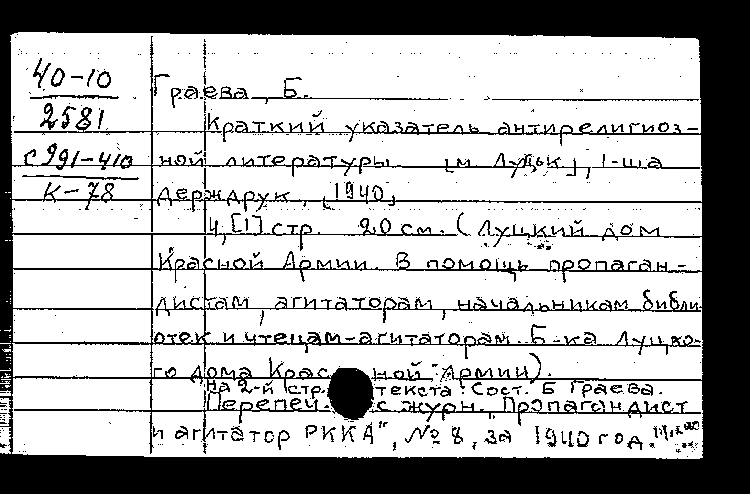 40-10
2581
с991-410
К-78
Граева, Б.
Краткий указатель антирелигиоз-
ной литературы [м Луцьк], 1-ша
Держдрук, [1940]
4,[1] стр. 20 см. (Луцкий дом
Красной Армии. В помощь пропаган-
дистам, агитаторам, начальникам библи
отек и чтецам-агитаторам. Б-ка Луцко-
го дома Крас ной Армии).
На 2-й стр. текста: Сост. Б Граева.
Перепеч. с журн. „Пропагандист
и агитатор РККА", №8, за 1940 год.